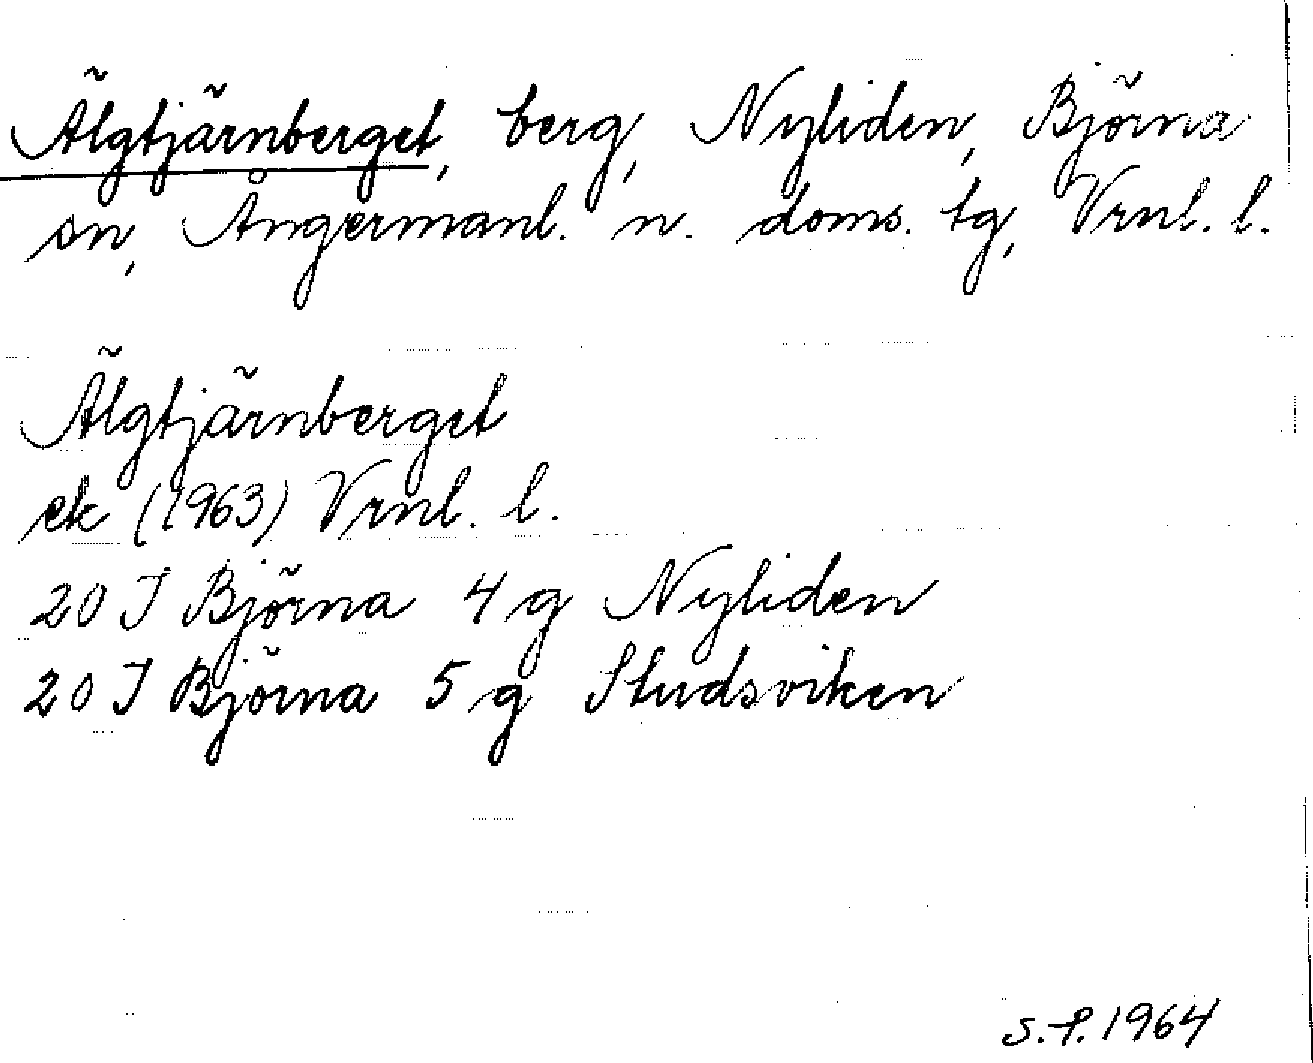 Älgtjärnberget, berg, Nyliden, Björna
sn, Ångermanl. n. doms. tg, Vrnl. l.
Älgtjärnberget
ek (1963) Vrnl. l.
20 J Björna 4 g Nyliden
20 J Björna 5 g Studsviken
S.F. 1964